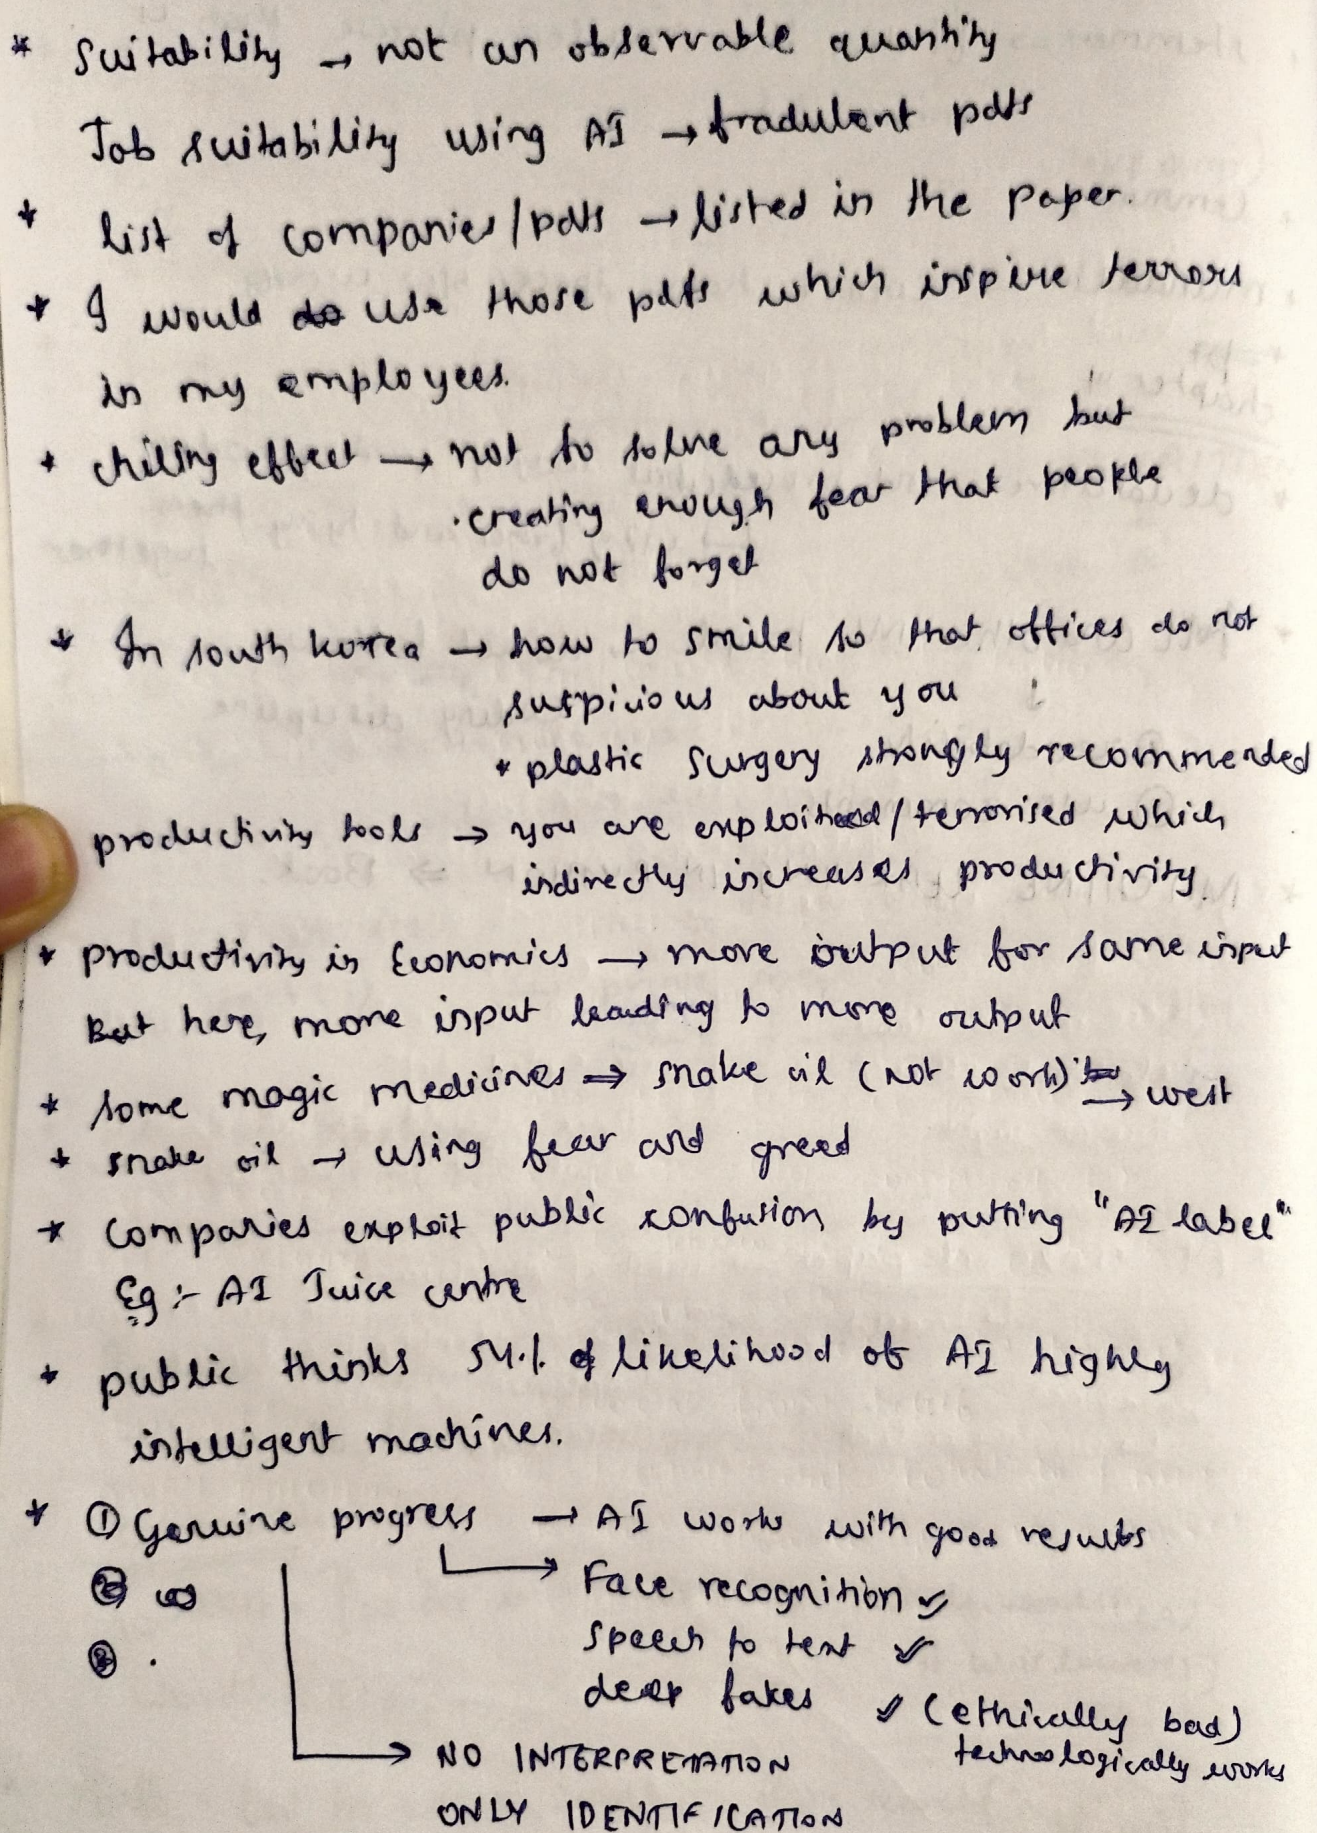 * Suitability → not an observable quantity
Job suitability using AI → fradulent pdts
* list of companies/pdts → listed in the paper.
* I would use those pdts which inspire terrors
in my employees.
* chilling effect → not to solve any problem but
. creating enough fear that people
do not forget
* In south korea → how to smile so that offices do not
suspicious about you
* plastic surgery strongly recommended
productivity tools → you are exploited/terrorised which
indirectly increases productivity.
* productivity in Economics → more output for same input
But here, more input leading to more output
* some magic medicines ⇒ snake oil (not work) → west
* snake oil → using fear and greed
* Companies exploit public confusion by putting "AI label"
Eg :- AI Juice centre
* public thinks 54% of likelihood of AI highly
intelligent machines.
* ① Genuine progress → AI works with good results
② → Face recognition ✓
speech to text ✓
③ . deep fakes ✓ (ethically bad)
technologically works
→ NO INTERPRETATION
ONLY IDENTIFICATION